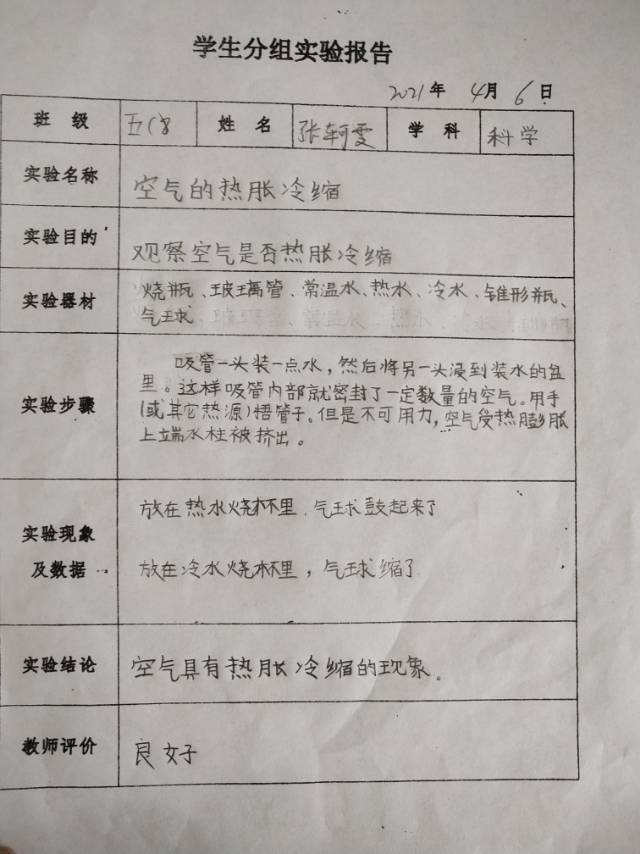 学生分组实验报告
2021年 4月 6日
班 级 五 姓 名 张轲雯 学 科 科学
实验名称 空气的热胀冷缩
实验目的 观察空气是否热胀冷缩
实验器材 烧瓶、玻璃管、常温水、热水、冷水、锥形瓶、
气球
吸管一头装一点水，然后将另一头浸到装水的盆
里。这样吸管内部就密封了一定数量的空气。用手
实验步骤 (或其它热源)捂管子。但是不可用力，空气受热膨胀
上端水柱被挤出。
放在热水烧杯里．气球鼓起来了
实验现象
及数据 放在冷水烧杯里，气球缩了
实验结论 空气具有热胀冷缩的现象。
教师评价 良好